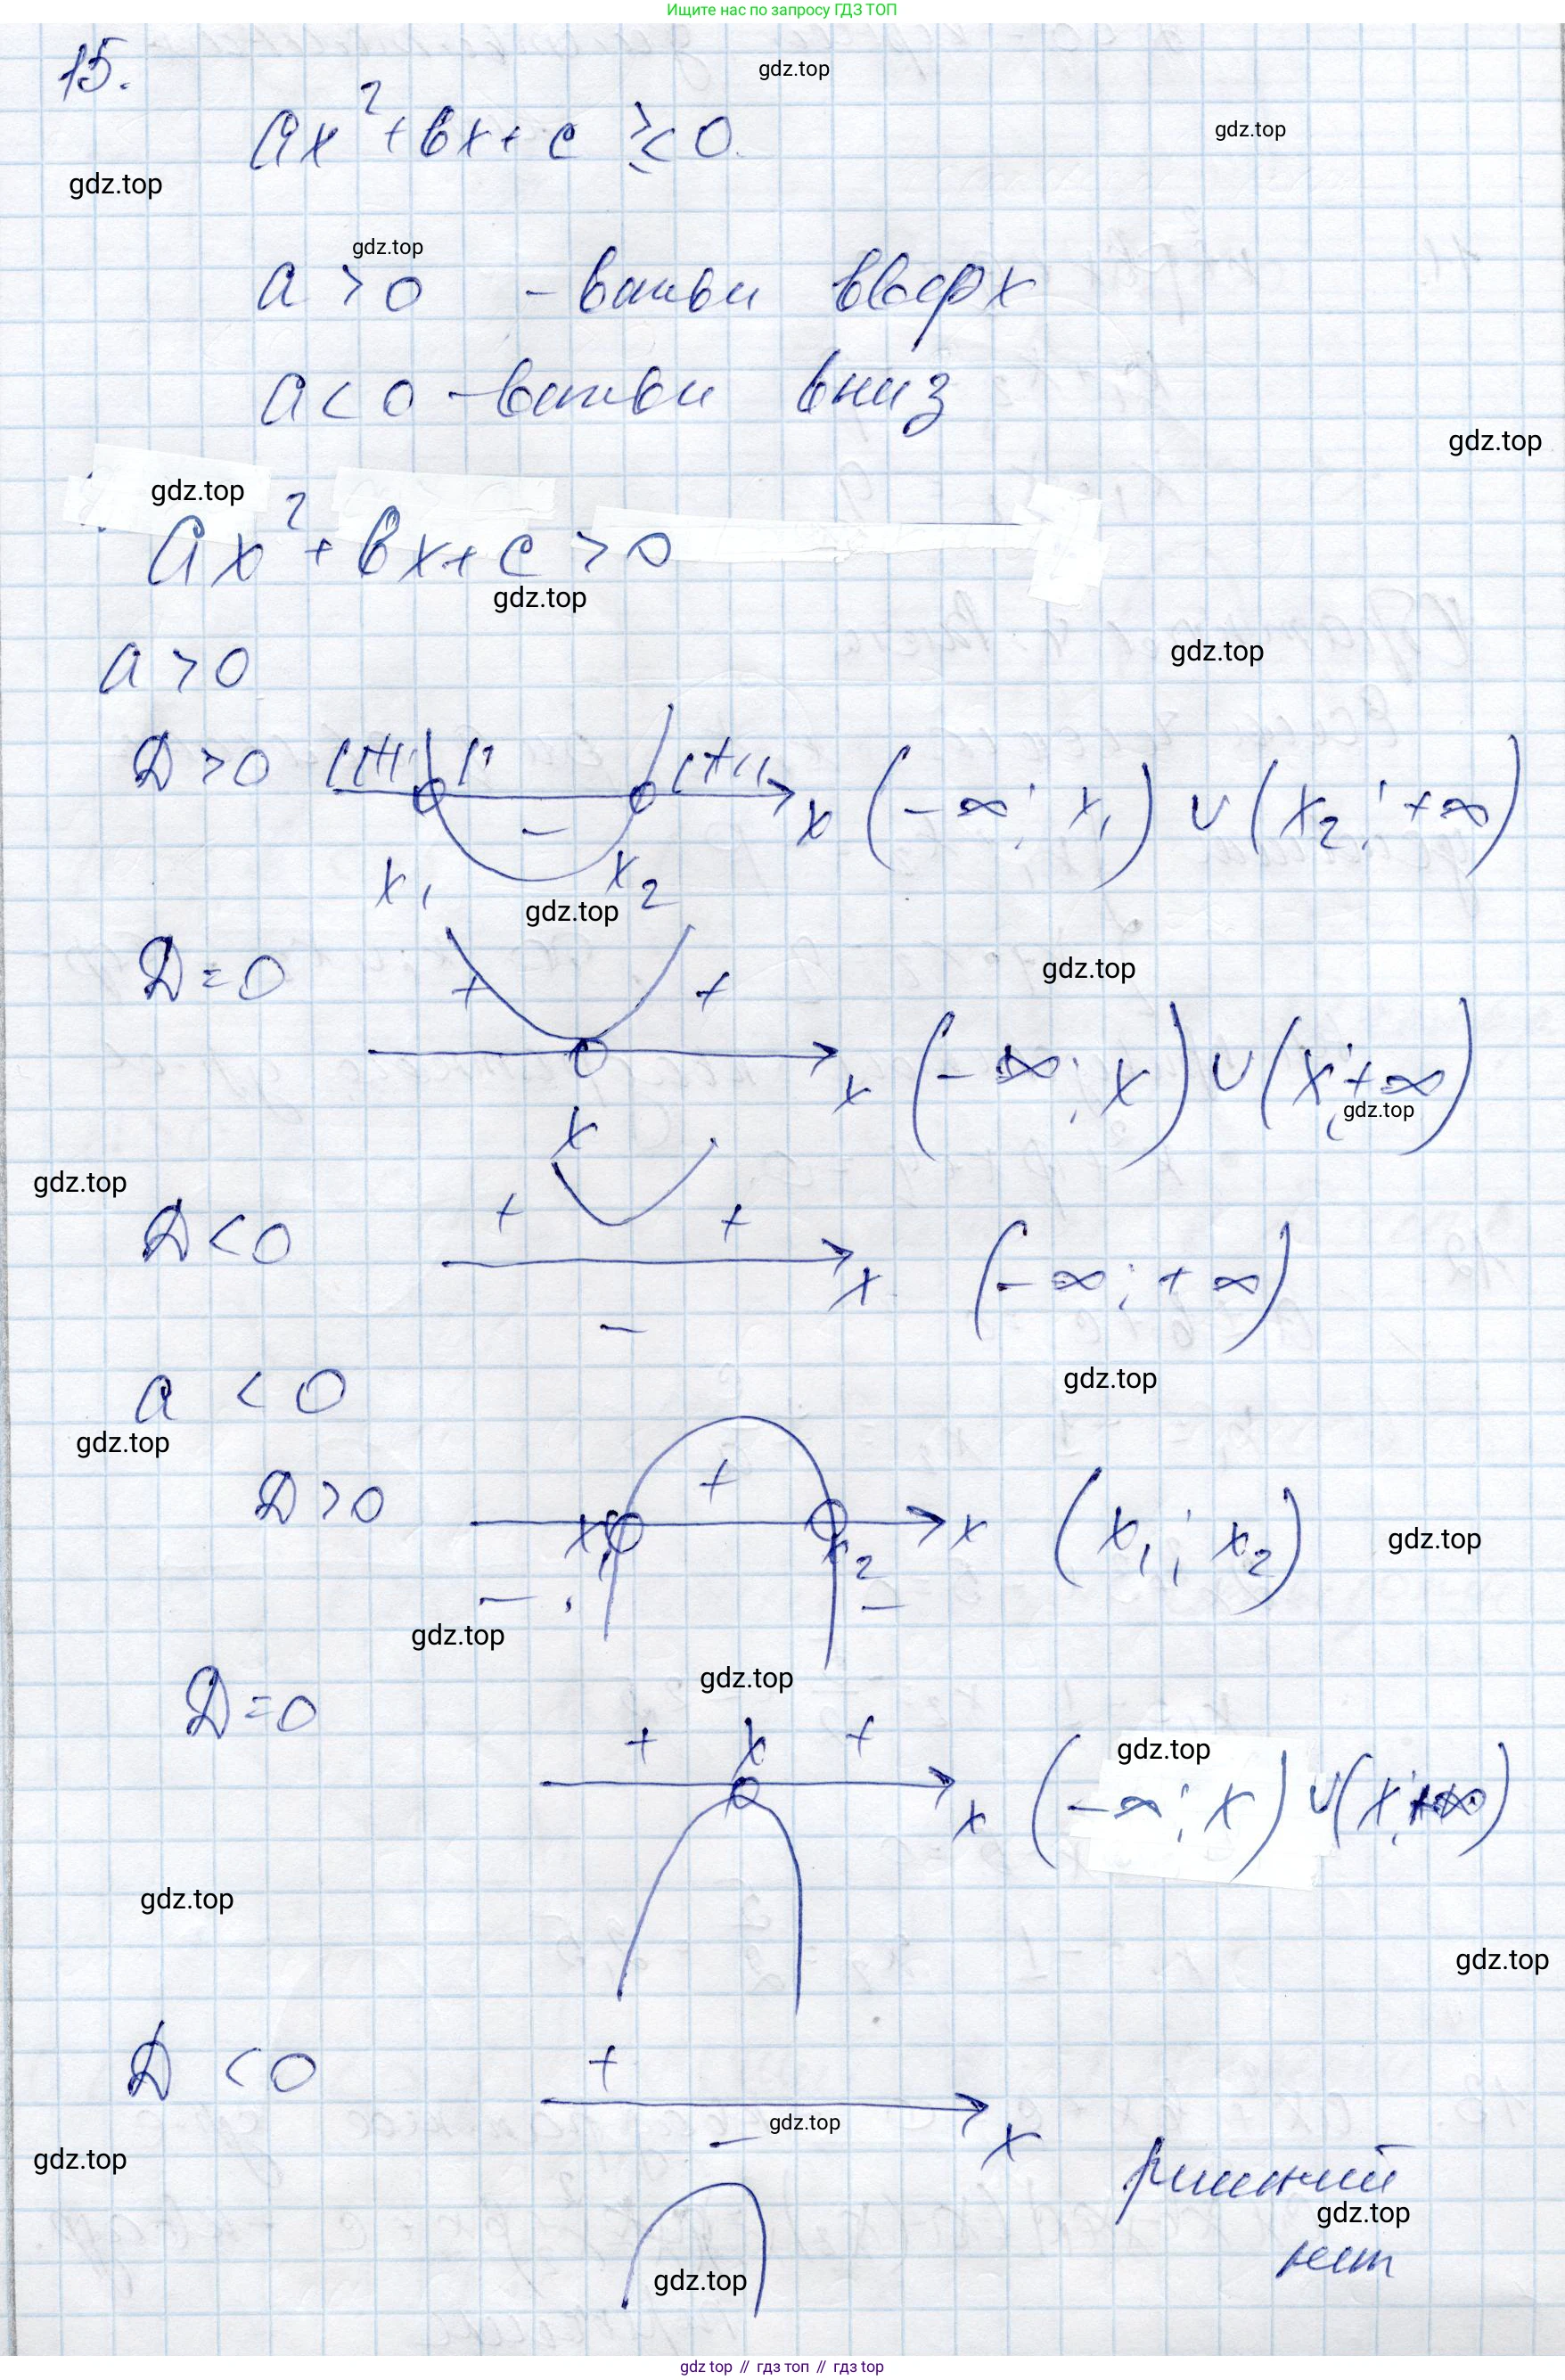 Ищите нас по запросу ГДЗ ТОП
15.
gdz.top
ax² + bx + c ≷ 0
gdz.top
gdz.top
gdz.top
a > 0 - ветви вверх
a < 0 - ветви вниз
gdz.top
gdz.top
ax² + bx + c > 0
gdz.top
a > 0
gdz.top
D > 0 + + x (-∞; x₁) ∪ (x₂; +∞)
-
x₁ x₂
gdz.top
D = 0 + +
gdz.top
x (-∞; x) ∪ (x; +∞)
gdz.top
x
gdz.top
D < 0 + + x (-∞; +∞)
-
a < 0
gdz.top
gdz.top
D > 0 + x₁ x₂ x (x₁; x₂)
gdz.top
- -
gdz.top
gdz.top
D = 0
+ x +
gdz.top
x (-∞; x) ∪ (x; +∞)
gdz.top
gdz.top
D < 0 +
gdz.top
- x
gdz.top
решений
gdz.top
нет
gdz.top
gdz top // гдз топ // гдз top